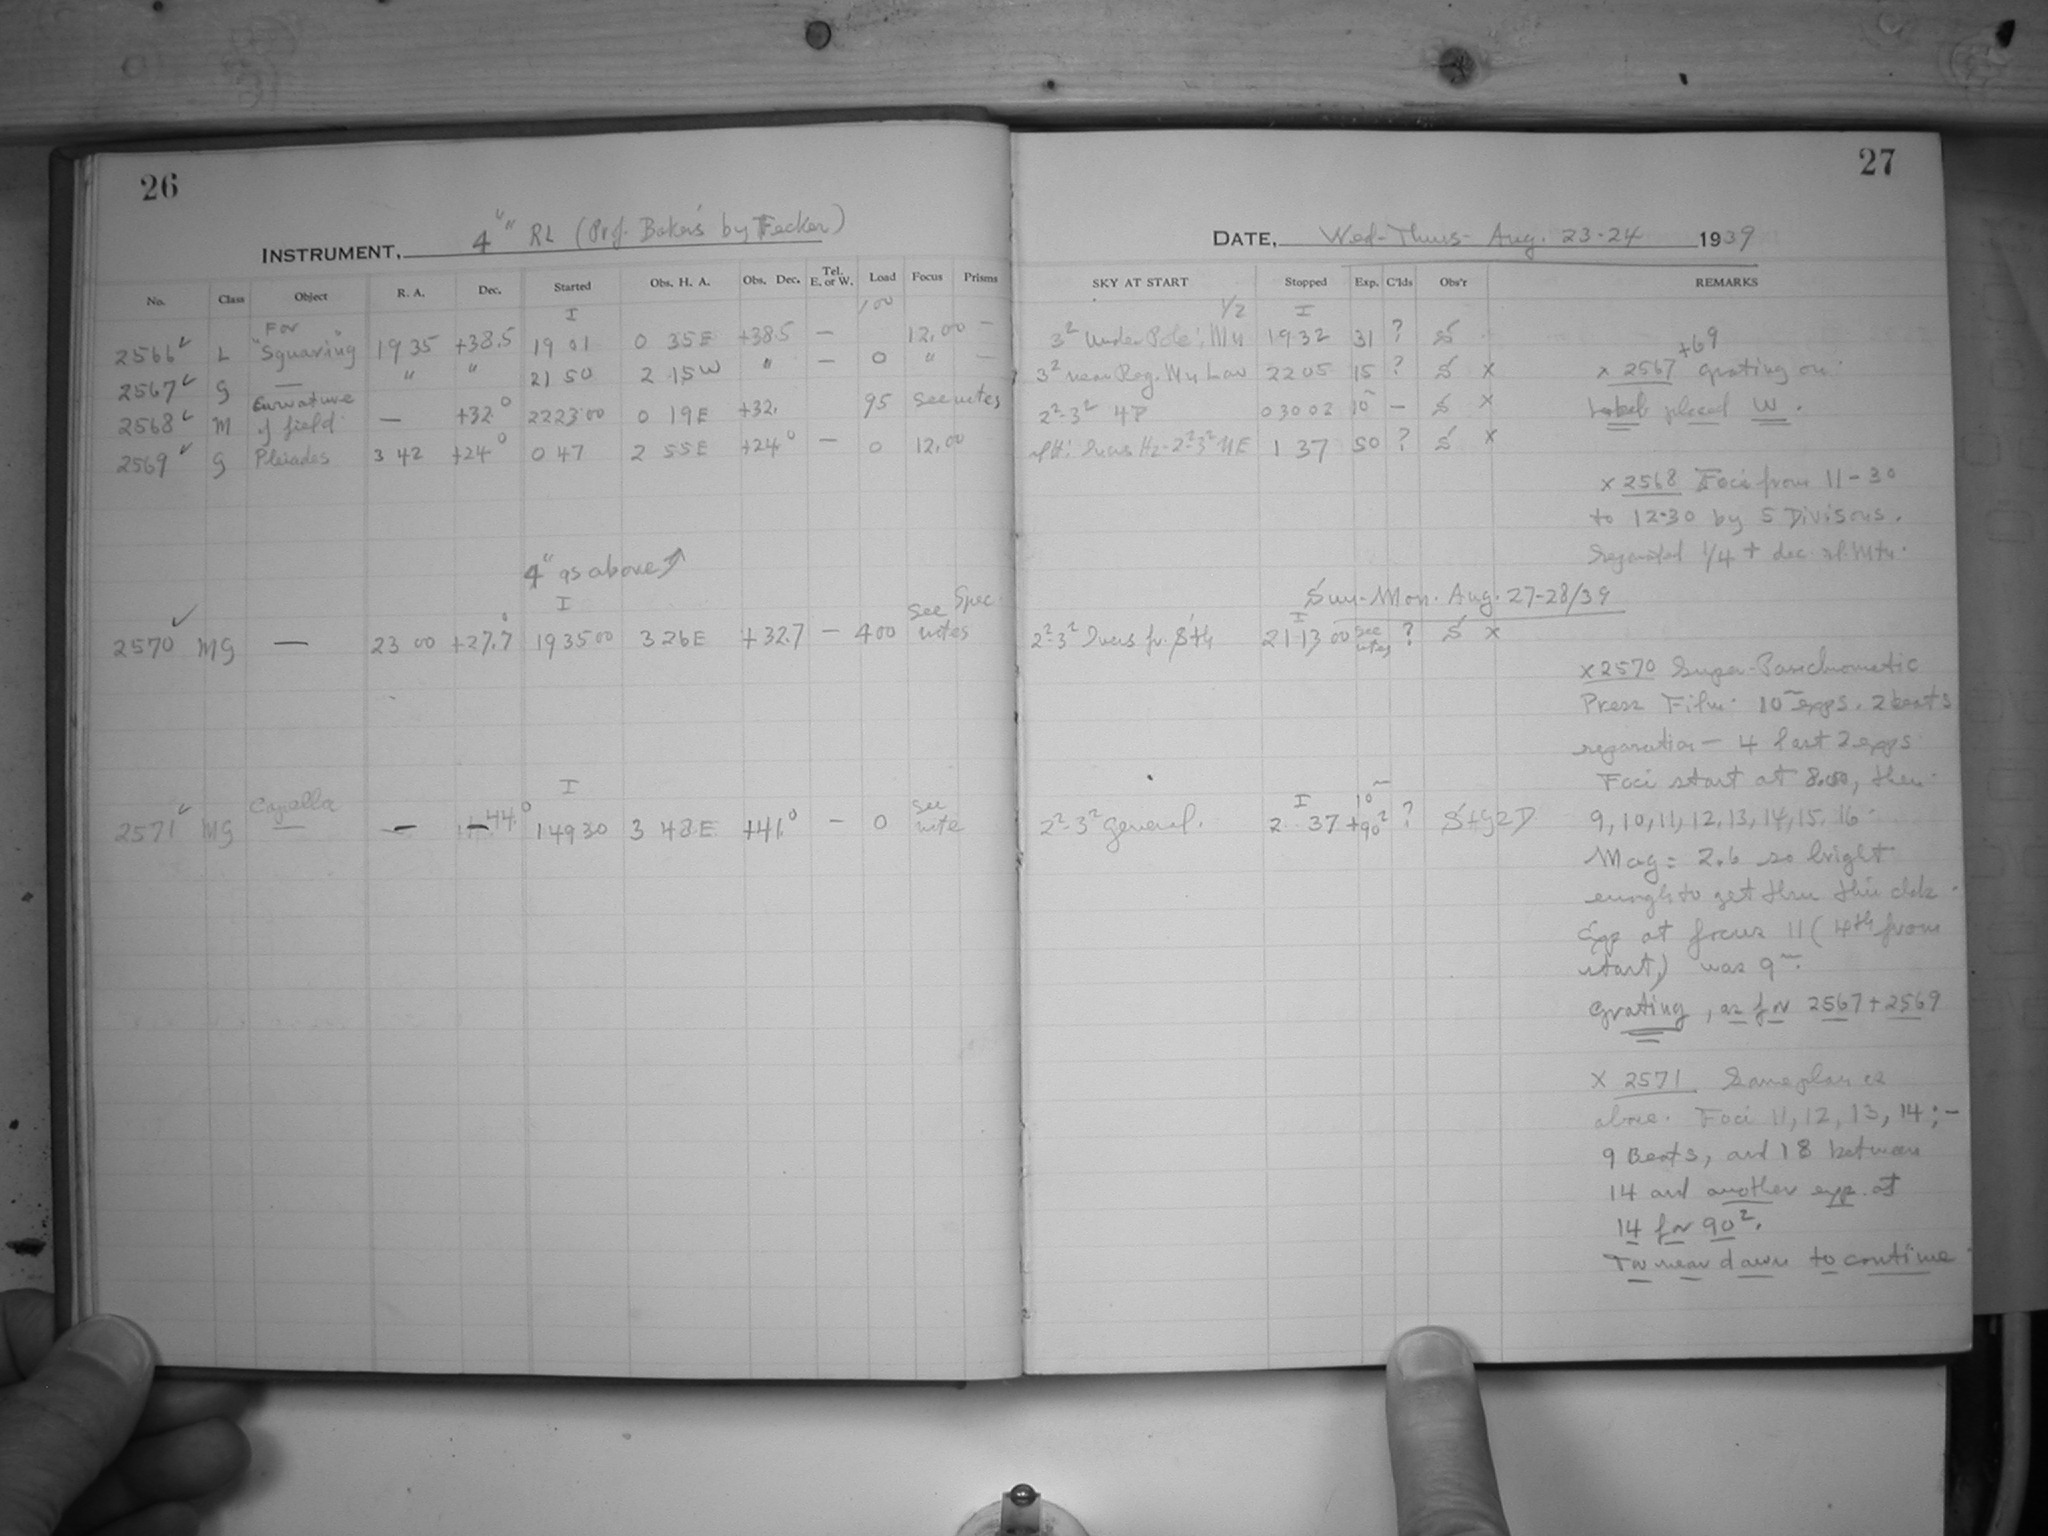 26
INSTRUMENT, 4" RL (Prof. Baker's by Fecker)
No. Class Object R. A. Dec. Started Obs. H. A. Obs. Dec. Tel. E. or W. Load Focus Prisms
I 100
2566 L For "Squaring" 19 35 +38.5 19 01 0 35E +38.5 — 12.00 —
2567 G — " " 21 50 2 15W " — 0 " —
2568 M Curvature of field — +32° 22 23 00 0 19E +32. 95 see notes
2569 G Pleiades 3 42 +24° 0 47 2 55E +24° — 0 12.00
4" as above
I
2570 MG — 23 00 +27.7° 19 35 00 3 26E +32.7 — 400 see Spec. notes
I
2571 MG Capella — — 44° 1 49 30 3 48E +41° — 0 see note
27
DATE, Wed-Thurs- Aug. 23-24 1939
SKY AT START Stopped Exp. C'lds Obs'r REMARKS
1/2 I
3² Under Pole: 19 32 31 ? S
3² near 22 05 15 ? S x
2²-3² 03 00 2 10 — S x
2²-3² NE 1 37 50 ? S x
x 2567 +69 grating on.
Label placed W.
x 2568 Foci from 11-30
to 12-30 by 5 Divisons.
1/4 + dec.
Sun-Mon. Aug. 27-28/39
I
2²-3² 21 13 00 see notes ? S x
x 2570 Super-Panchromatic
Press Film. 10ᵐ exps. 2 beats
separation - 4 last 2 exps.
Foci start at 8.00, then
9, 10, 11, 12, 13, 14, 15, 16
Mag = 2.6 so bright
enough to get thru thin clds.
Exp at focus 11 (4th from
start) was 9ᵐ.
Grating, as for 2567 + 2569
I
2²-3² general. 2 37 10ᵐ +90² ?
x 2571 Same plan as
above. Foci 11, 12, 13, 14; -
9 Beats, and 18 between
14 and another exp. at
14 for 90².
Too near dawn to continue